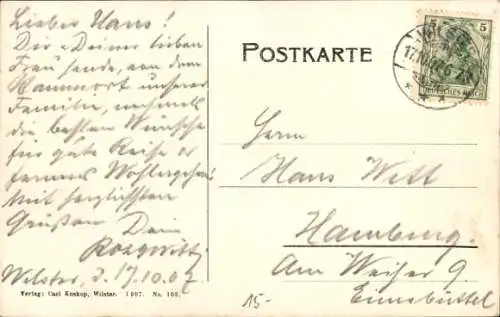 Lieber Hans!
Dir u Deiner lieben
Frau sende, von dem
Stammort unserer
Familie, nochmals
die besten Wünsche
für gute Reise &
ferneres Wohlergehen!
Mit herzlichsten
Grüßen Dein
Wilster, d. 17.10.07
Verlag: Carl Kuskop, Wilster. 1907. No. 106.
POSTKARTE
5 5
DEUTSCHES REICH
Herrn
Hans Witt
Hamburg.
Am Weiher 9.
Eimsbüttel
15-